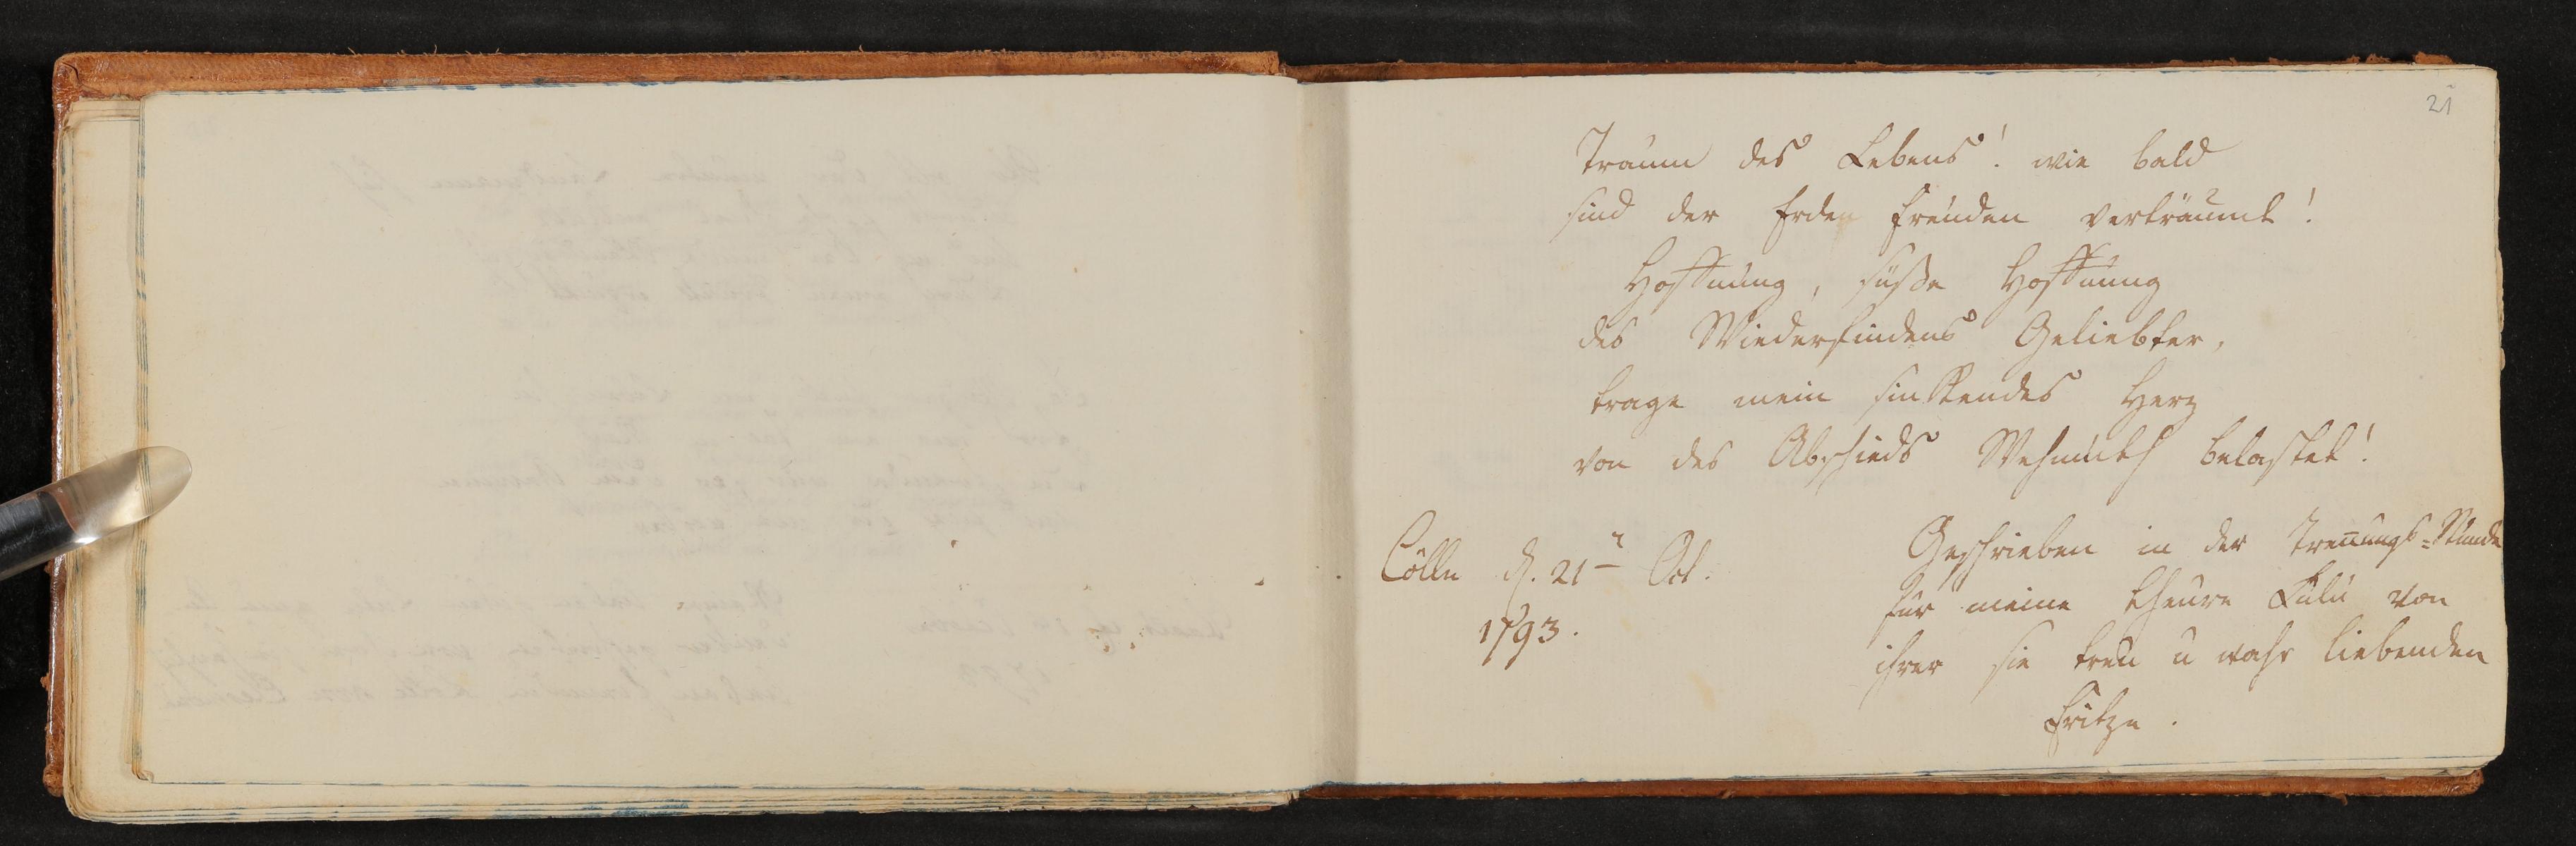 21
Traum des Lebens! wie bald
sind der Erden Freuden verträumt!
Hoffnung, süße Hoffnung
des Wiederfindens Geliebter,
trage mein sinkendes Herz
von des Abschieds Wehmuth belastet!
Cölln d. 21n Oct.
1793.
Geschrieben in der Trenungs=Stunde
für meine theure Lulu von
ihrer sie treu u wahr liebenden
Fritze.